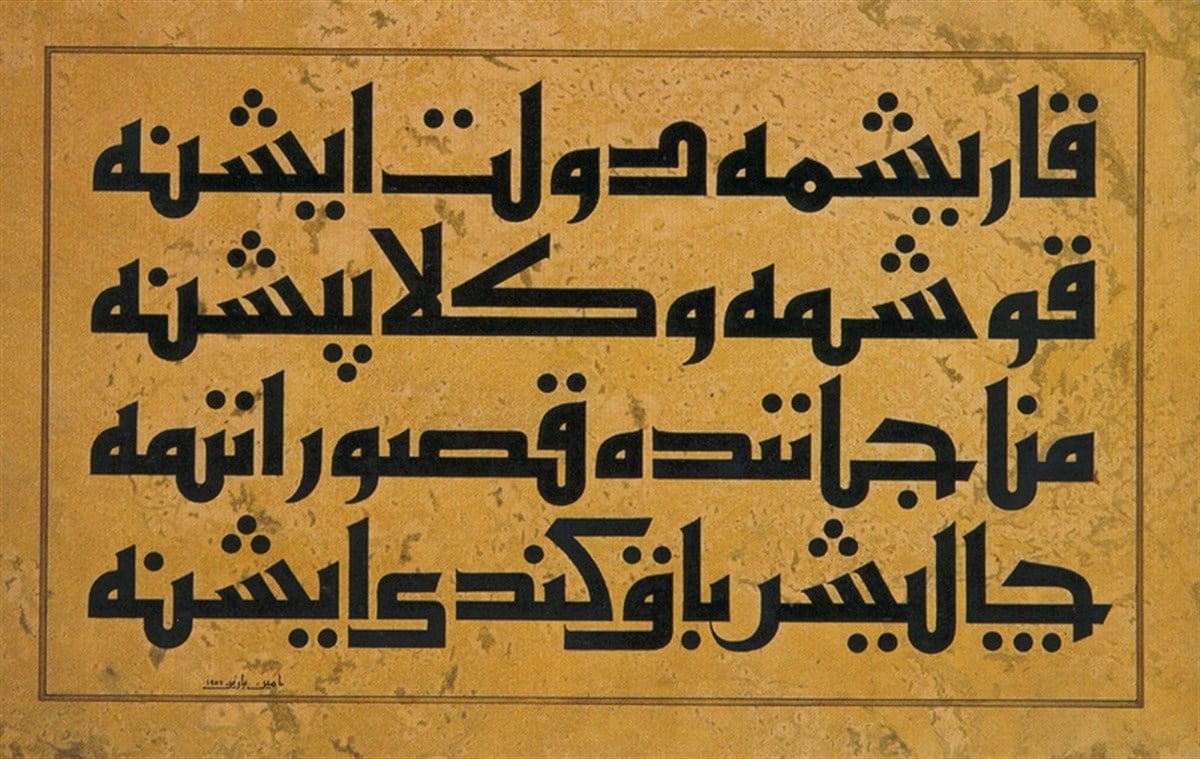 قاریشمه دولت ایشنه
قوشمه وكلا پشنه
مناجاتنده قصور اتمه
چالیش باق كندی ایشنه
امین بارین